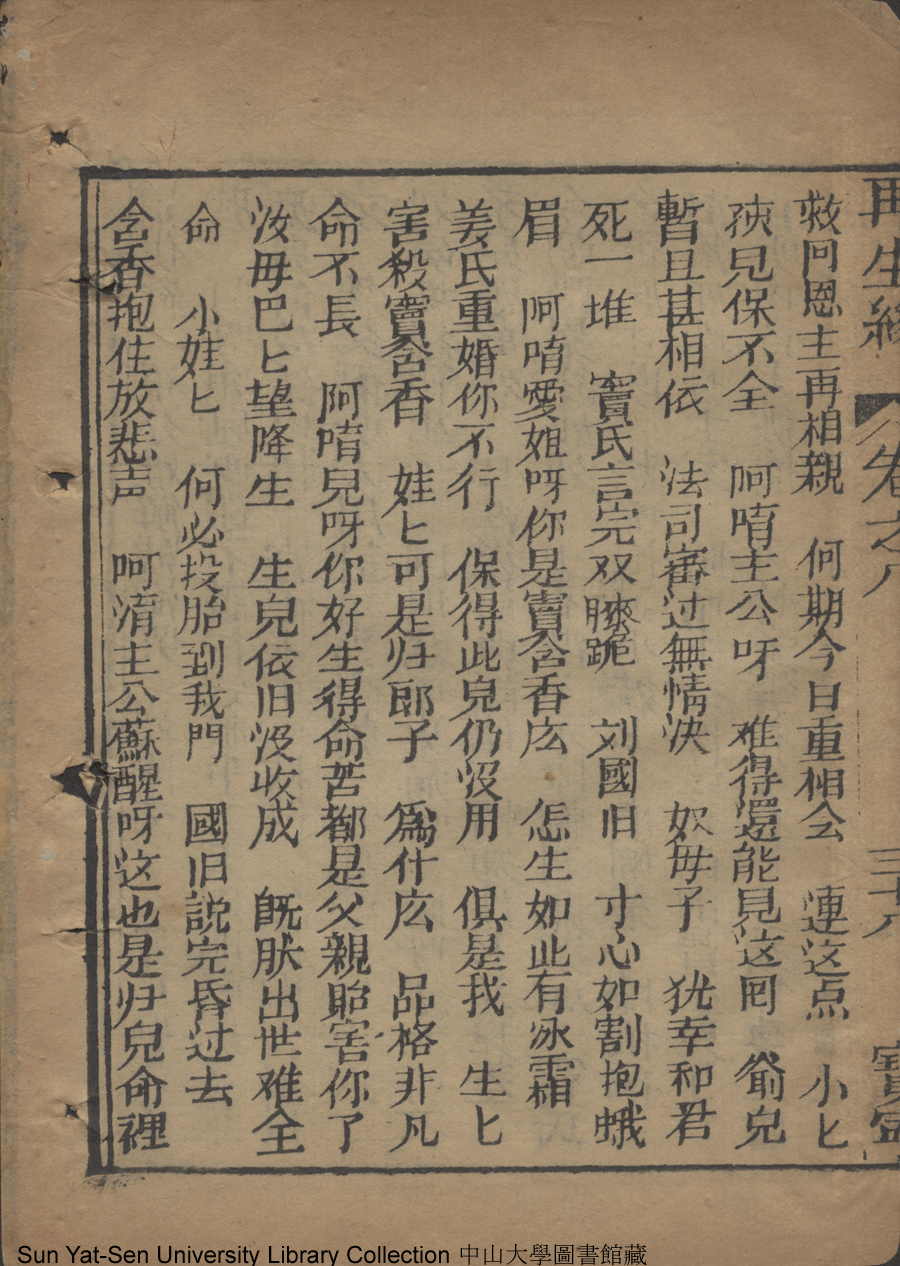 再生緣 卷之八 三十八
救回恩主再相親 何期今日重相会 連这点 小匕
孩兒保不全 呵唷主公呀 难得還能見这囘 爺兒
暫且甚相依 法司審过無情決 奴母子 犹幸和君
死一堆 竇氏言完双膝跪 刘國旧 寸心如割抱蛾
眉 呵唷愛姐呀你是竇含香庅 怎生如此有冰霜
姜氏重婚你不行 保得此兒仍没用 俱是我 生匕
害殺竇含香 娃匕可是归郎子 為什庅 品格非凡
命不長 阿唷兒呀你好生得命苦都是父親貽害你了
汝母巴匕望降生 生兒依旧没收成 既肰出世难全
命 小娃匕 何必投胎到我門 國旧説完昏过去
含香抱住放悲声 呵唷主公蘇醒呀这也是归兒命裡
Sun Yat-Sen University Library Collection 中山大學圖書館藏